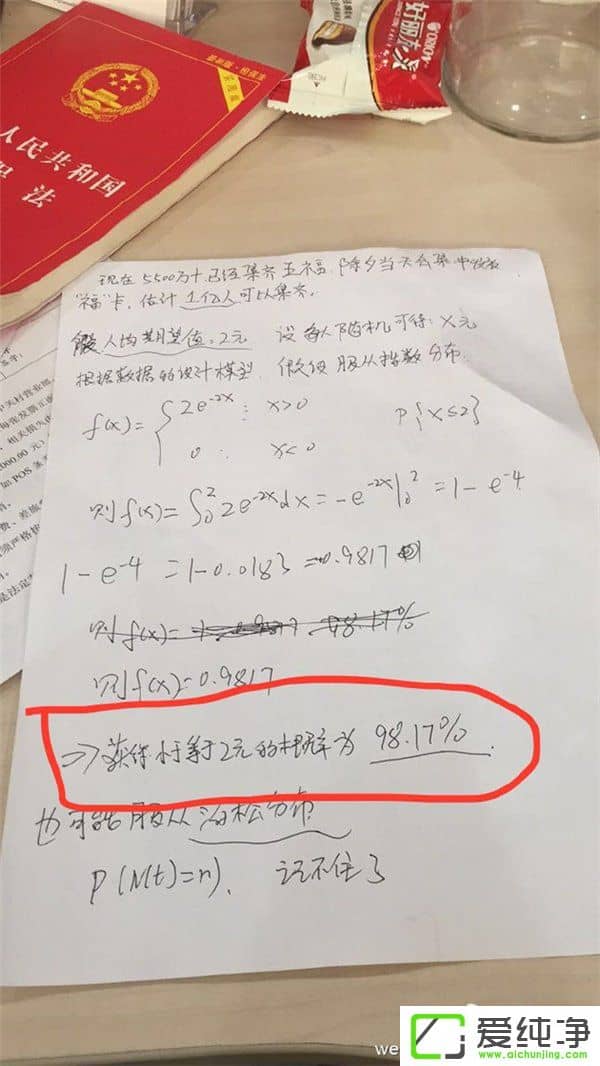 人民共和国
法
实用版
好丽友
ORION
现在5500万+已经集齐五福,除夕当天会集中发放
"福"卡,估计1亿人可以集齐.
假人均期望值.2元 设每人随机可得:X元
根据数据的统计模型,假设服从指数分布.
f(x)={2e^-2x : x>0
0 : x<0
P{X≤2}
则f(x)=∫₀²2e^-2x dx=-e^-2x|₀²=1-e^-4
1-e^-4=1-0.0183=0.9817
则f(x)=0.9817
=>获得小于等于2元的概率为 98.17%.
也可能服从泊松分布
P(N(t)=n). 记不住了
we
爱纯净
www.aichunjing.com